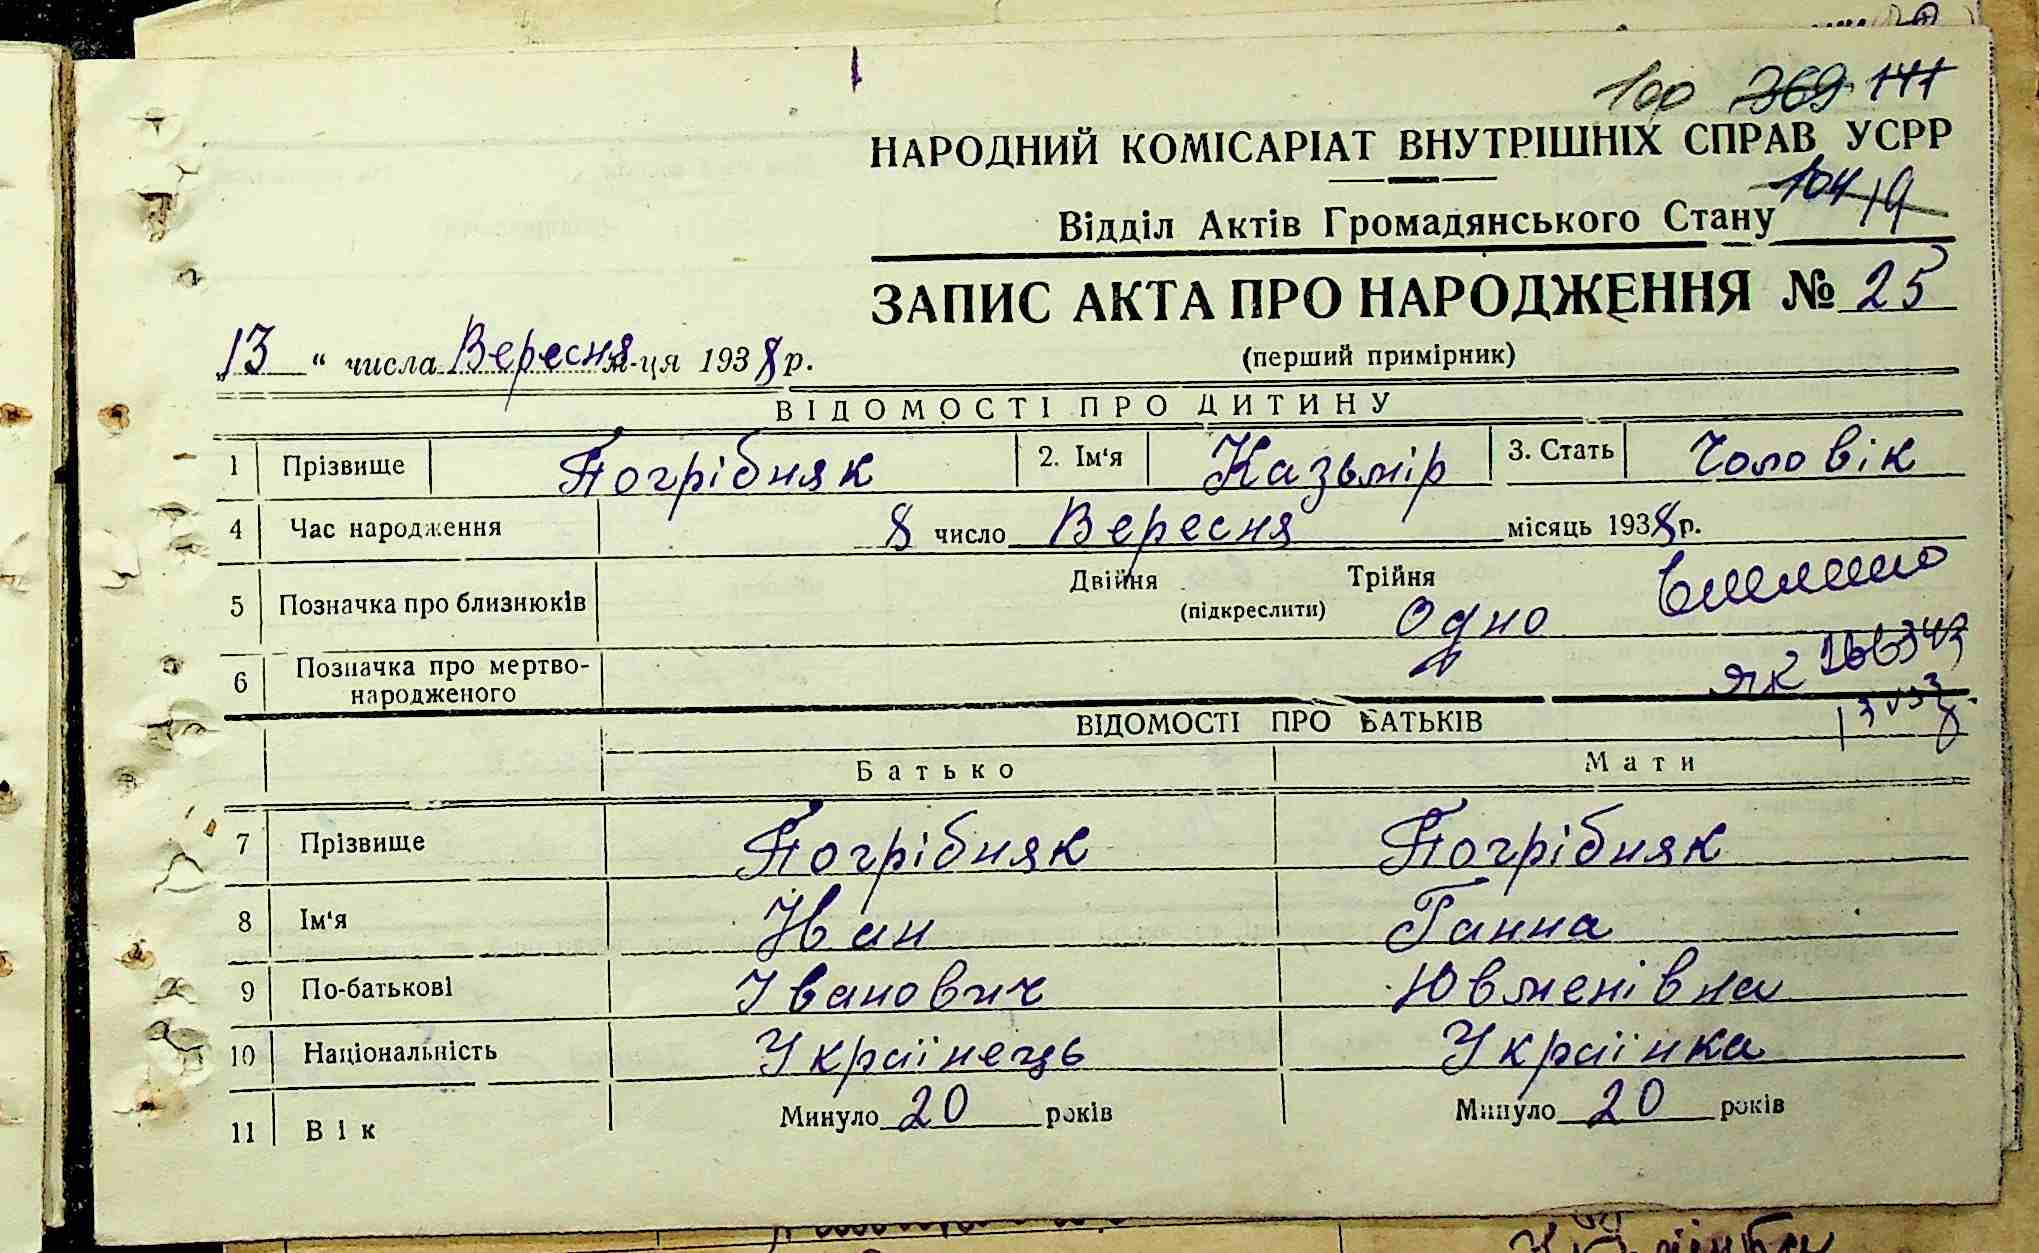 100 369 111
НАРОДНИЙ КОМІСАРІАТ ВНУТРІШНІХ СПРАВ УСРР
104 19
Відділ Актів Громадянського Стану
ЗАПИС АКТА ПРО НАРОДЖЕННЯ № 25
(перший примірник)
„13“ числа Вересня м-ця 1938 р.
ВІДОМОСТІ ПРО ДИТИНУ
1 Прізвище Погрібняк 2. Ім'я Казьмір 3. Стать Чоловік
4 Час народження 8 число Вересня місяць 1938 р.
5 Позначка про близнюків Двійня Трійня
(підкреслити) Одно
6 Позначка про мертво-
народженого
як 166343
ВІДОМОСТІ ПРО БАТЬКІВ
Батько Мати
7 Прізвище Погрібняк Погрібняк
8 Ім'я Іван Ганна
9 По-батькові Іванович Ювменівна
10 Національність Українець Українка
11 Вік Минуло 20 років Минуло 20 років